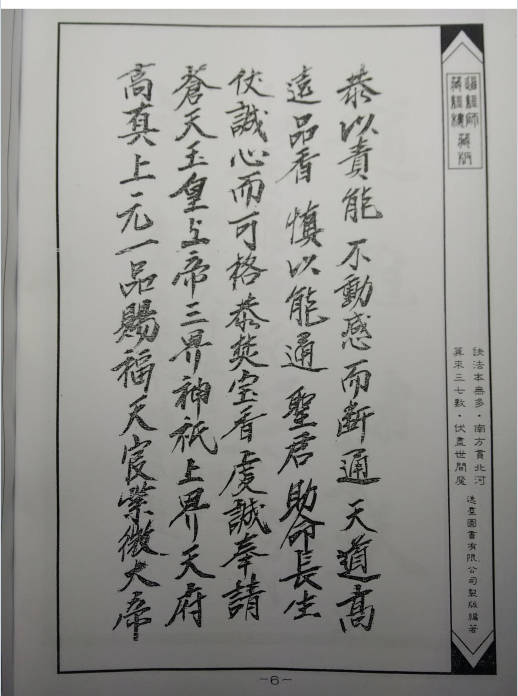 恭以責能不動感而斷通天道高
遠品香慎以能通聖君助命長生
伏誠心而可格恭焚宝香虔誠奉請
蒼天玉皇上帝三界神祇上界天府
高真上元一品賜福天官紫微大帝
道經師
藏經樓藏版
訣法本無多·南方貫北河
算來三七數·伏盡世間魔
逸群圖書有限公司製版編著
-6-